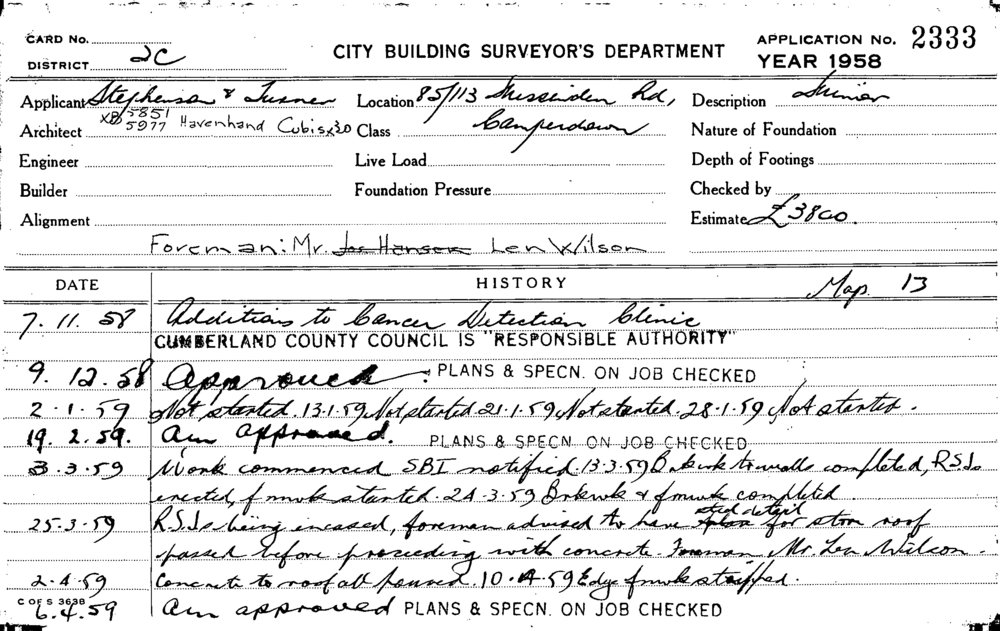 CARD No. CITY BUILDING SURVEYOR'S DEPARTMENT APPLICATION No. 2333
DISTRICT 2C YEAR 1958
Applicant Stephenson & Turner Location 85/113 Missenden Rd, Description Minor
XB 5851
Architect 5977 Havenhand Cubis x30 Class Camperdown Nature of Foundation
Engineer Live Load Depth of Footings
Builder Foundation Pressure Checked by
Alignment Estimate £3800.
Foreman: Mr. Joe Hansen Len Wilson
DATE HISTORY Map. 13
7. 11. 58 Additions to Cancer Detection Clinic
CUMBERLAND COUNTY COUNCIL IS "RESPONSIBLE AUTHORITY"
9. 12. 58 Approved. PLANS & SPECN. ON JOB CHECKED
2.1.59 Not started. 13.1.59 Not started 21.1.59 Not started. 28.1.59 Not started.
19. 2. 59. Am approved. PLANS & SPECN. ON JOB CHECKED
3.3.59 Work commenced SBI notified. 13.3.59 Brkwk to walls completed, RSJs
erected, fmwk started. 24.3.59 Brkwk & fmwk completed.
25.3.59 R.S.Js being encased, foreman advised to have steel detail for roof
passed before proceeding with concrete. Foreman Mr. Len Wilson.
2.4.59 Concrete to roof all poured. 10.4.59 Edge fmwk stripped.
C OF S 3638
6.4.59 Am approved PLANS & SPECN. ON JOB CHECKED